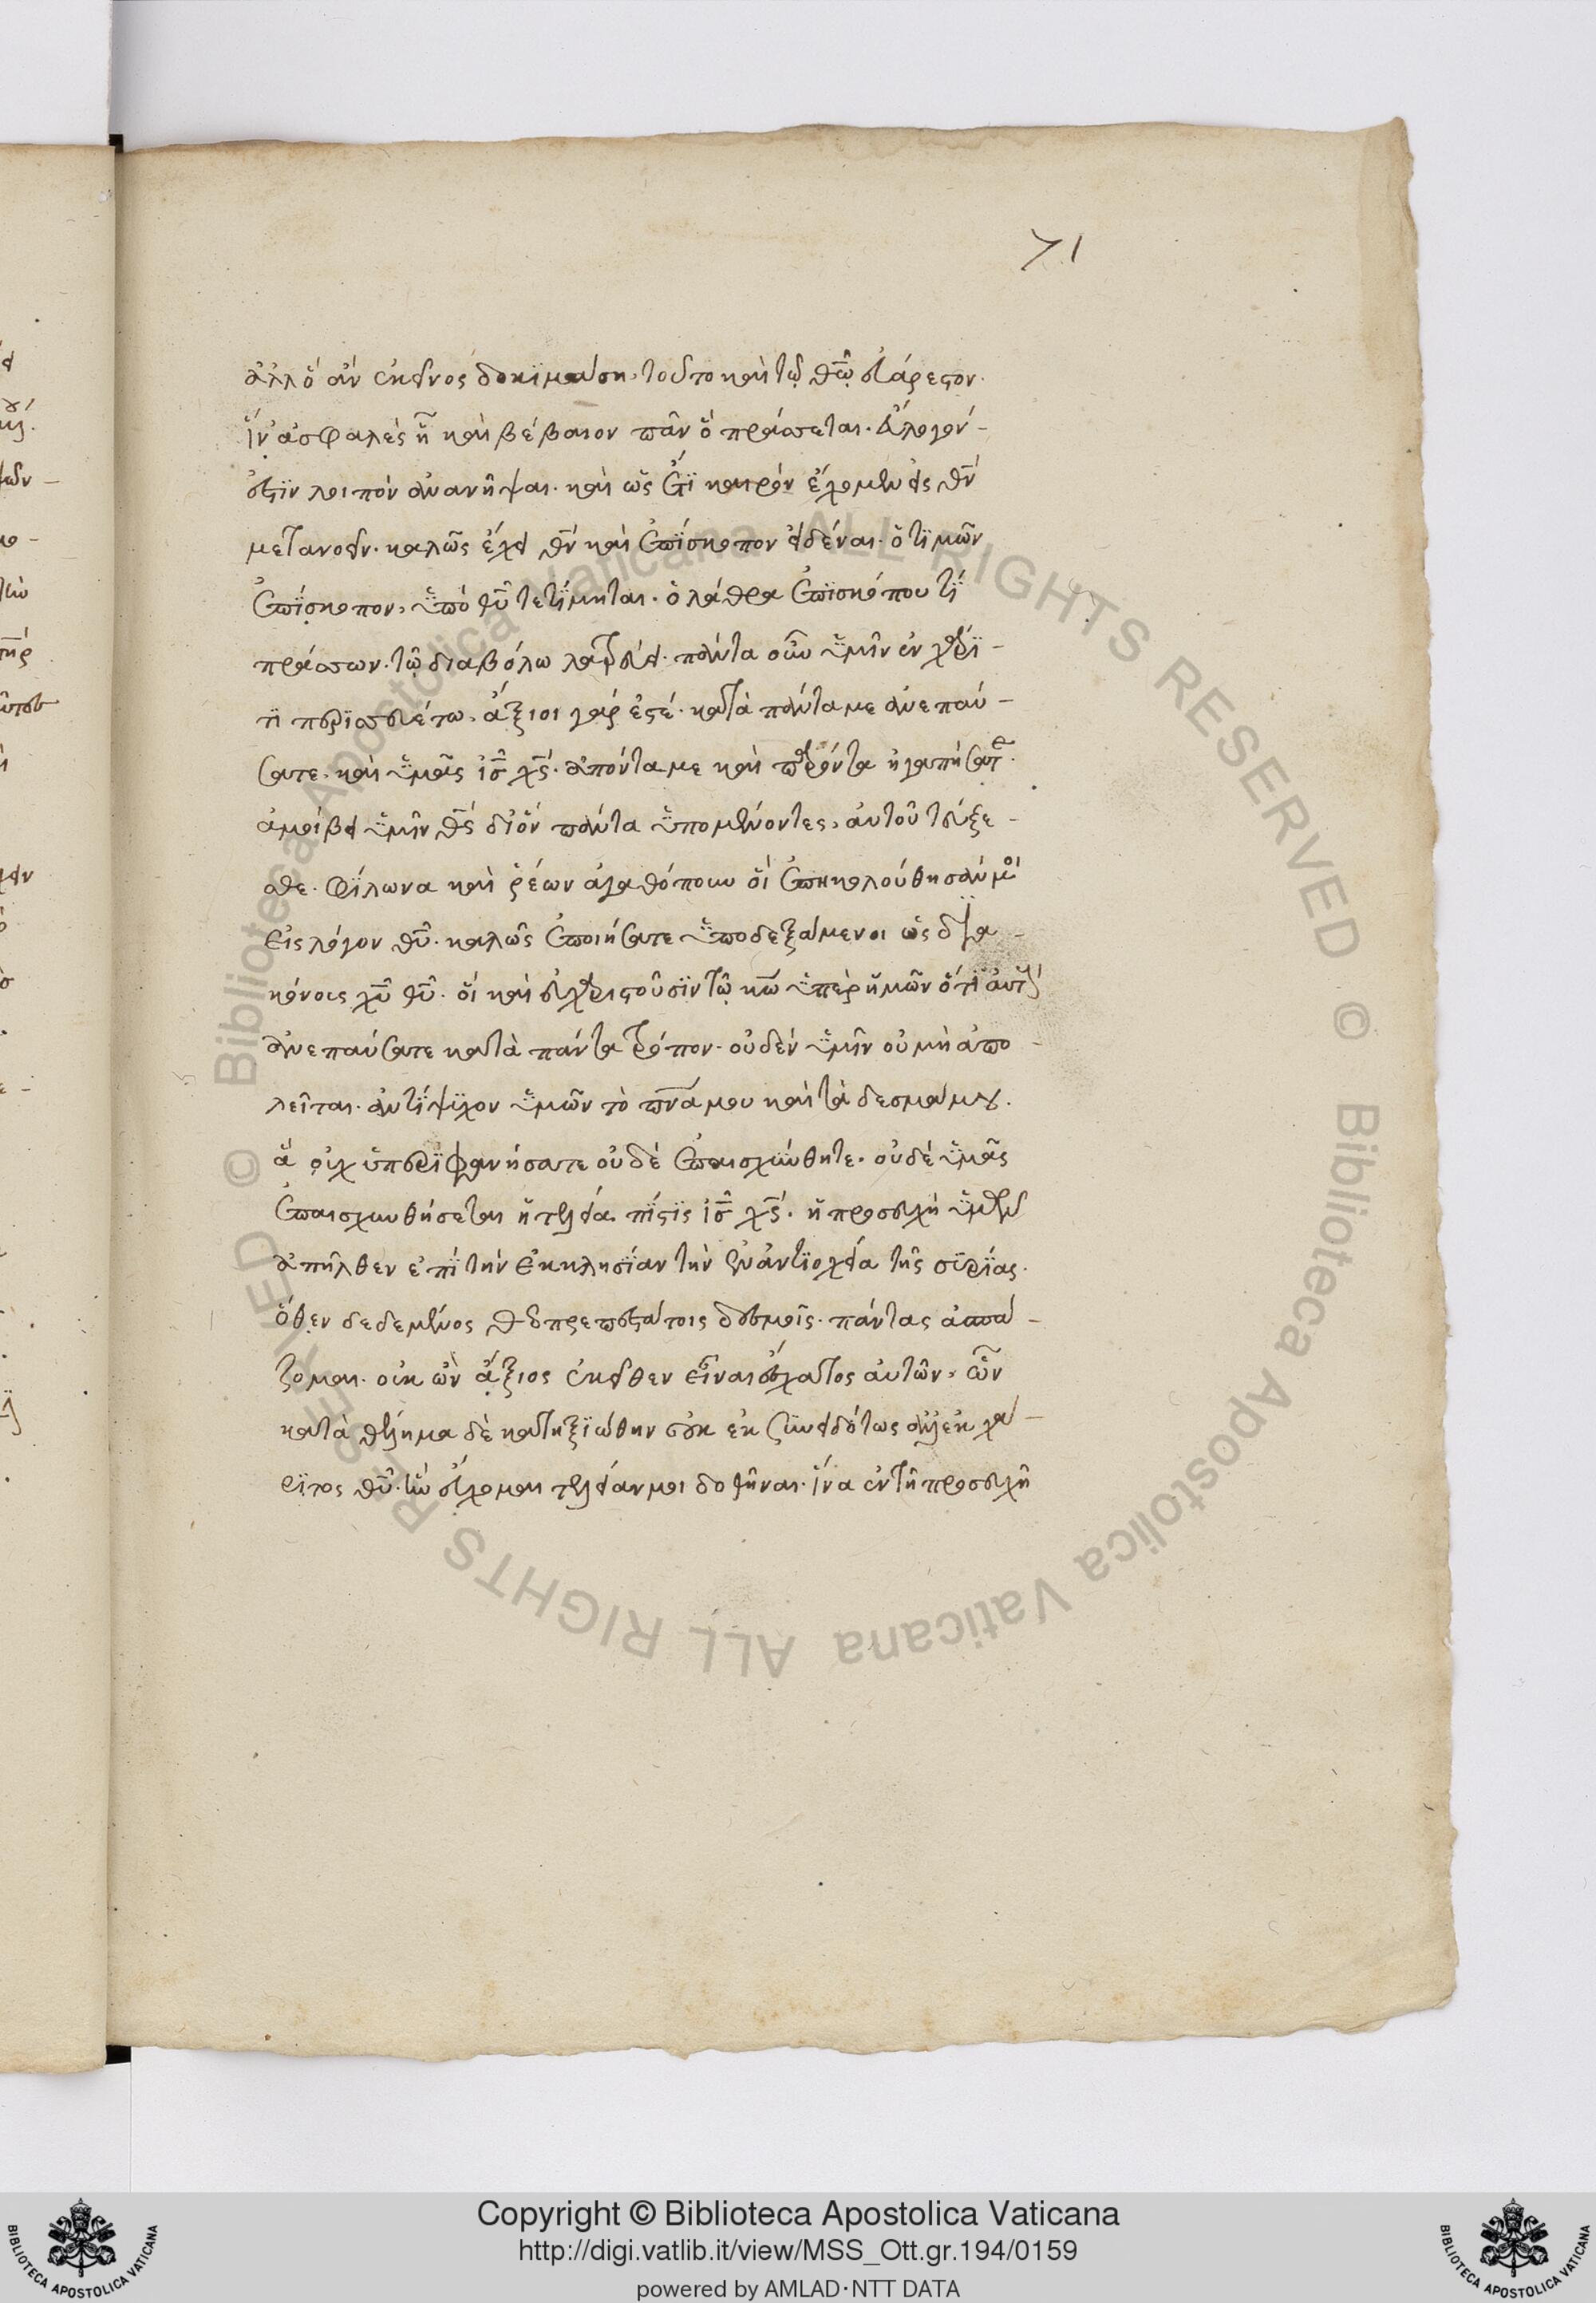 71
ἀλλ' ὃ ἂν ἐκεῖνος δοκϊμάση, τοῦτο καὶ τῷ θ̅ῶ εὐάρεστον.
ἵν' ἀσφαλὲς ἦ καὶ βέβαιον πᾶν ὃ πράσσεται. Εὔλογόν -
ἐστϊν λοιπὸν ἀνανῆψαι. καὶ ὡς ἔτϊ καιρὸν ἔχομεν εἰς θ̅ν
μετανοεῖν. καλῶς ἔχει θ̅ν καὶ ἐπΐσκοπον εἰδέναι. ὁ τϊμῶν
ἐπΐσκοπον, ὑπὸ θ̅υ τετΐμηται. ὁ λάθρα ἐπϊσκόπου τϊ
πράσσων. τῷ διαβόλω λατρεύει. πάντα οὖν ὑμῖν ἐν χάρϊ -
τϊ περϊσσευέτω. ἄξιοι γάρ ἐστέ. κατὰ πάντα με ἀνεπαύ -
σατε. καὶ ὑμᾶς ι̅σ χ̅ς. ἀπόντα με καὶ παρόντα ἠγαπήσατε.
ἀμείβει ὑμῖν θ̅ς δι' ὃν πάντα ὑπομένοντες, αὐτοῦ τεύξε -
σθε. Φΐλωνα καὶ ῥέων ἀγαθόπουν οἳ ἐπηκολούθησάν μοι
εἰς λόγον θ̅υ. καλῶς ἐποιήσατε ὑποδεξάμενοι ὡς δϊα -
κόνους χ̅υ θ̅υ. οἳ καὶ εὐχαριστοῦσϊν τῷ κ̅ω ὑπὲρ ἡμῶν ὅτϊ αὐτοὺς
ἀνεπαύσατε κατὰ πάντα τρόπον. οὐδὲν ὑμῖν οὐ μὴ ἀπο -
λεῖται. ἀντΐψϊχον ὑμῶν τὸ π̅ν̅α μου καὶ τὰ δεσμά μου.
ἃ οὐχ ὑπερϊφανήσατε οὐδὲ ἐπαισχύνθητε. οὐδὲ ὑμᾶς
ἐπαισχυνθήσεται ἡ τελεία πΐστϊς ι̅σ χ̅ς. ἡ προσευχὴ ὑμῶν
ἀπῆλθεν ἐπὶ τὴν ἐκκλησΐαν τὴν ἐν ἀντϊοχεία τῆς συρΐας.
ὅθεν δεδεμένος θεοπρεπεστάτοις δεσμοῖς. πάντας ἀσπά -
ζομαι. οὐκ ὢν ἄξιος ἐκεῖθεν εἶναι ἔσχατος αὐτῶν. ὢν
κατὰ θέλημα δὲ κατηξϊώθην οὐκ ἐκ συνειδότως ἀλλ' ἐκ χά -
ρϊτος θ̅υ. ἣν εὔχομαι τελείαν μοι δοθῆναι. ἵνα ἐν τῇ προσευχῇ
Copyright © Biblioteca Apostolica Vaticana
http://digi.vatlib.it/view/MSS_Ott.gr.194/0159
powered by AMLAD·NTT DATA